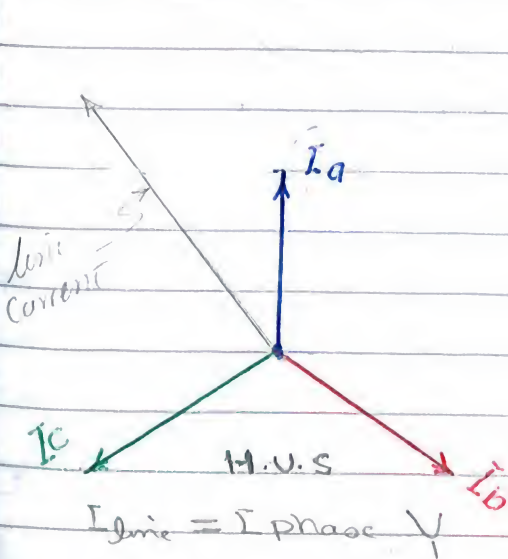 Ia
line
current
Ic
H.V.S
Ib
I line = I phase Y